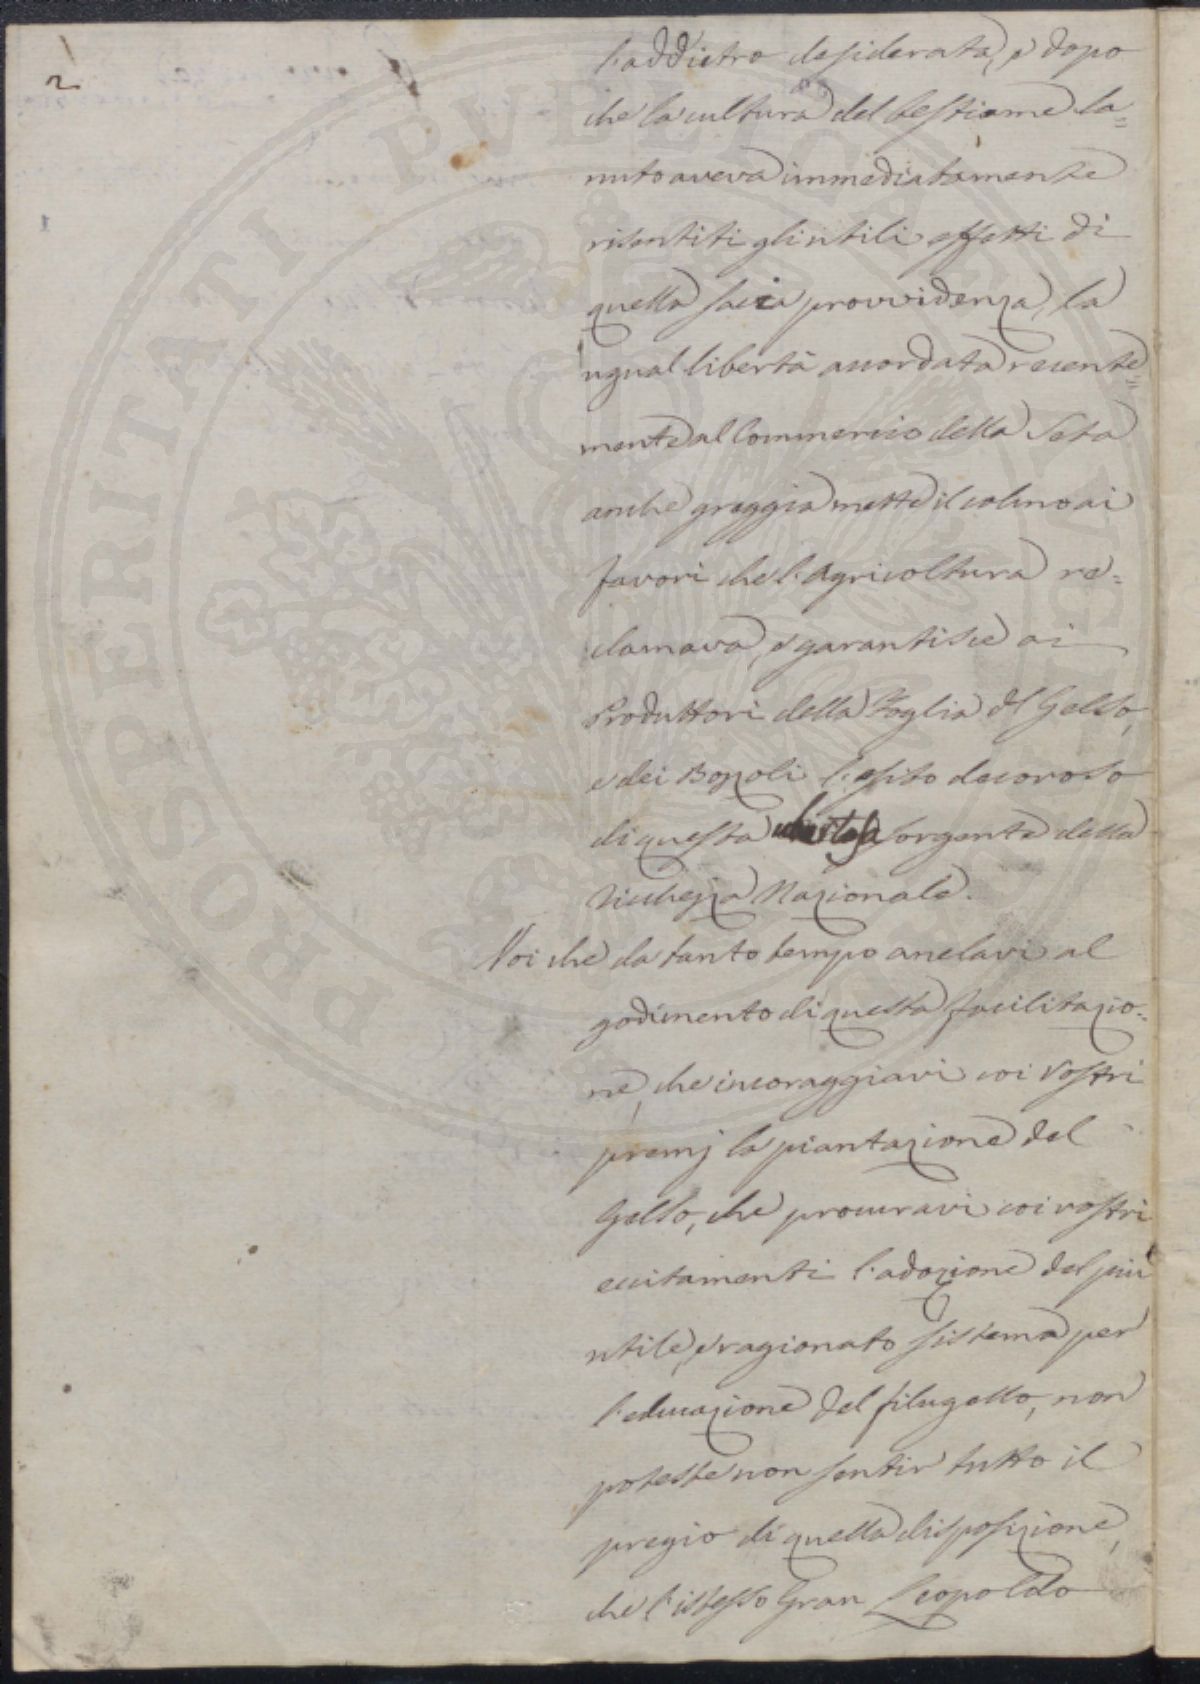 2
l'addietro desiderata, e dopo
che la cultura del bestiame la=
nuto aveva immediatamente
risentiti gli utili effetti di
quella savia provvidenza, la
ugual libertà accordata recente=
mente al Commercio della Seta
anche greggia mette il colmo ai
favori che l'Agricoltura re=
clamava, e garantisce ai
Produttori della Foglia del Gelso,
e dei Bozzoli l'esito decoroso
di questa sorgente della
ricchezza Nazionale.
Voi che da tanto tempo anelavi al
godimento di questa facilitazio=
ne, che incoraggiavi coi Vostri
premj la piantazione del
Gelso, che procuravi coi vostri
eccitamenti l'adozione del più
utile, e ragionato sistema per
l'educazione del filugello, non
poteste non sentir tutto il
pregio di quella disposizione,
che l'istesso Gran Leopoldo
PROSPERITATI PVBLICAE AVGENDAE